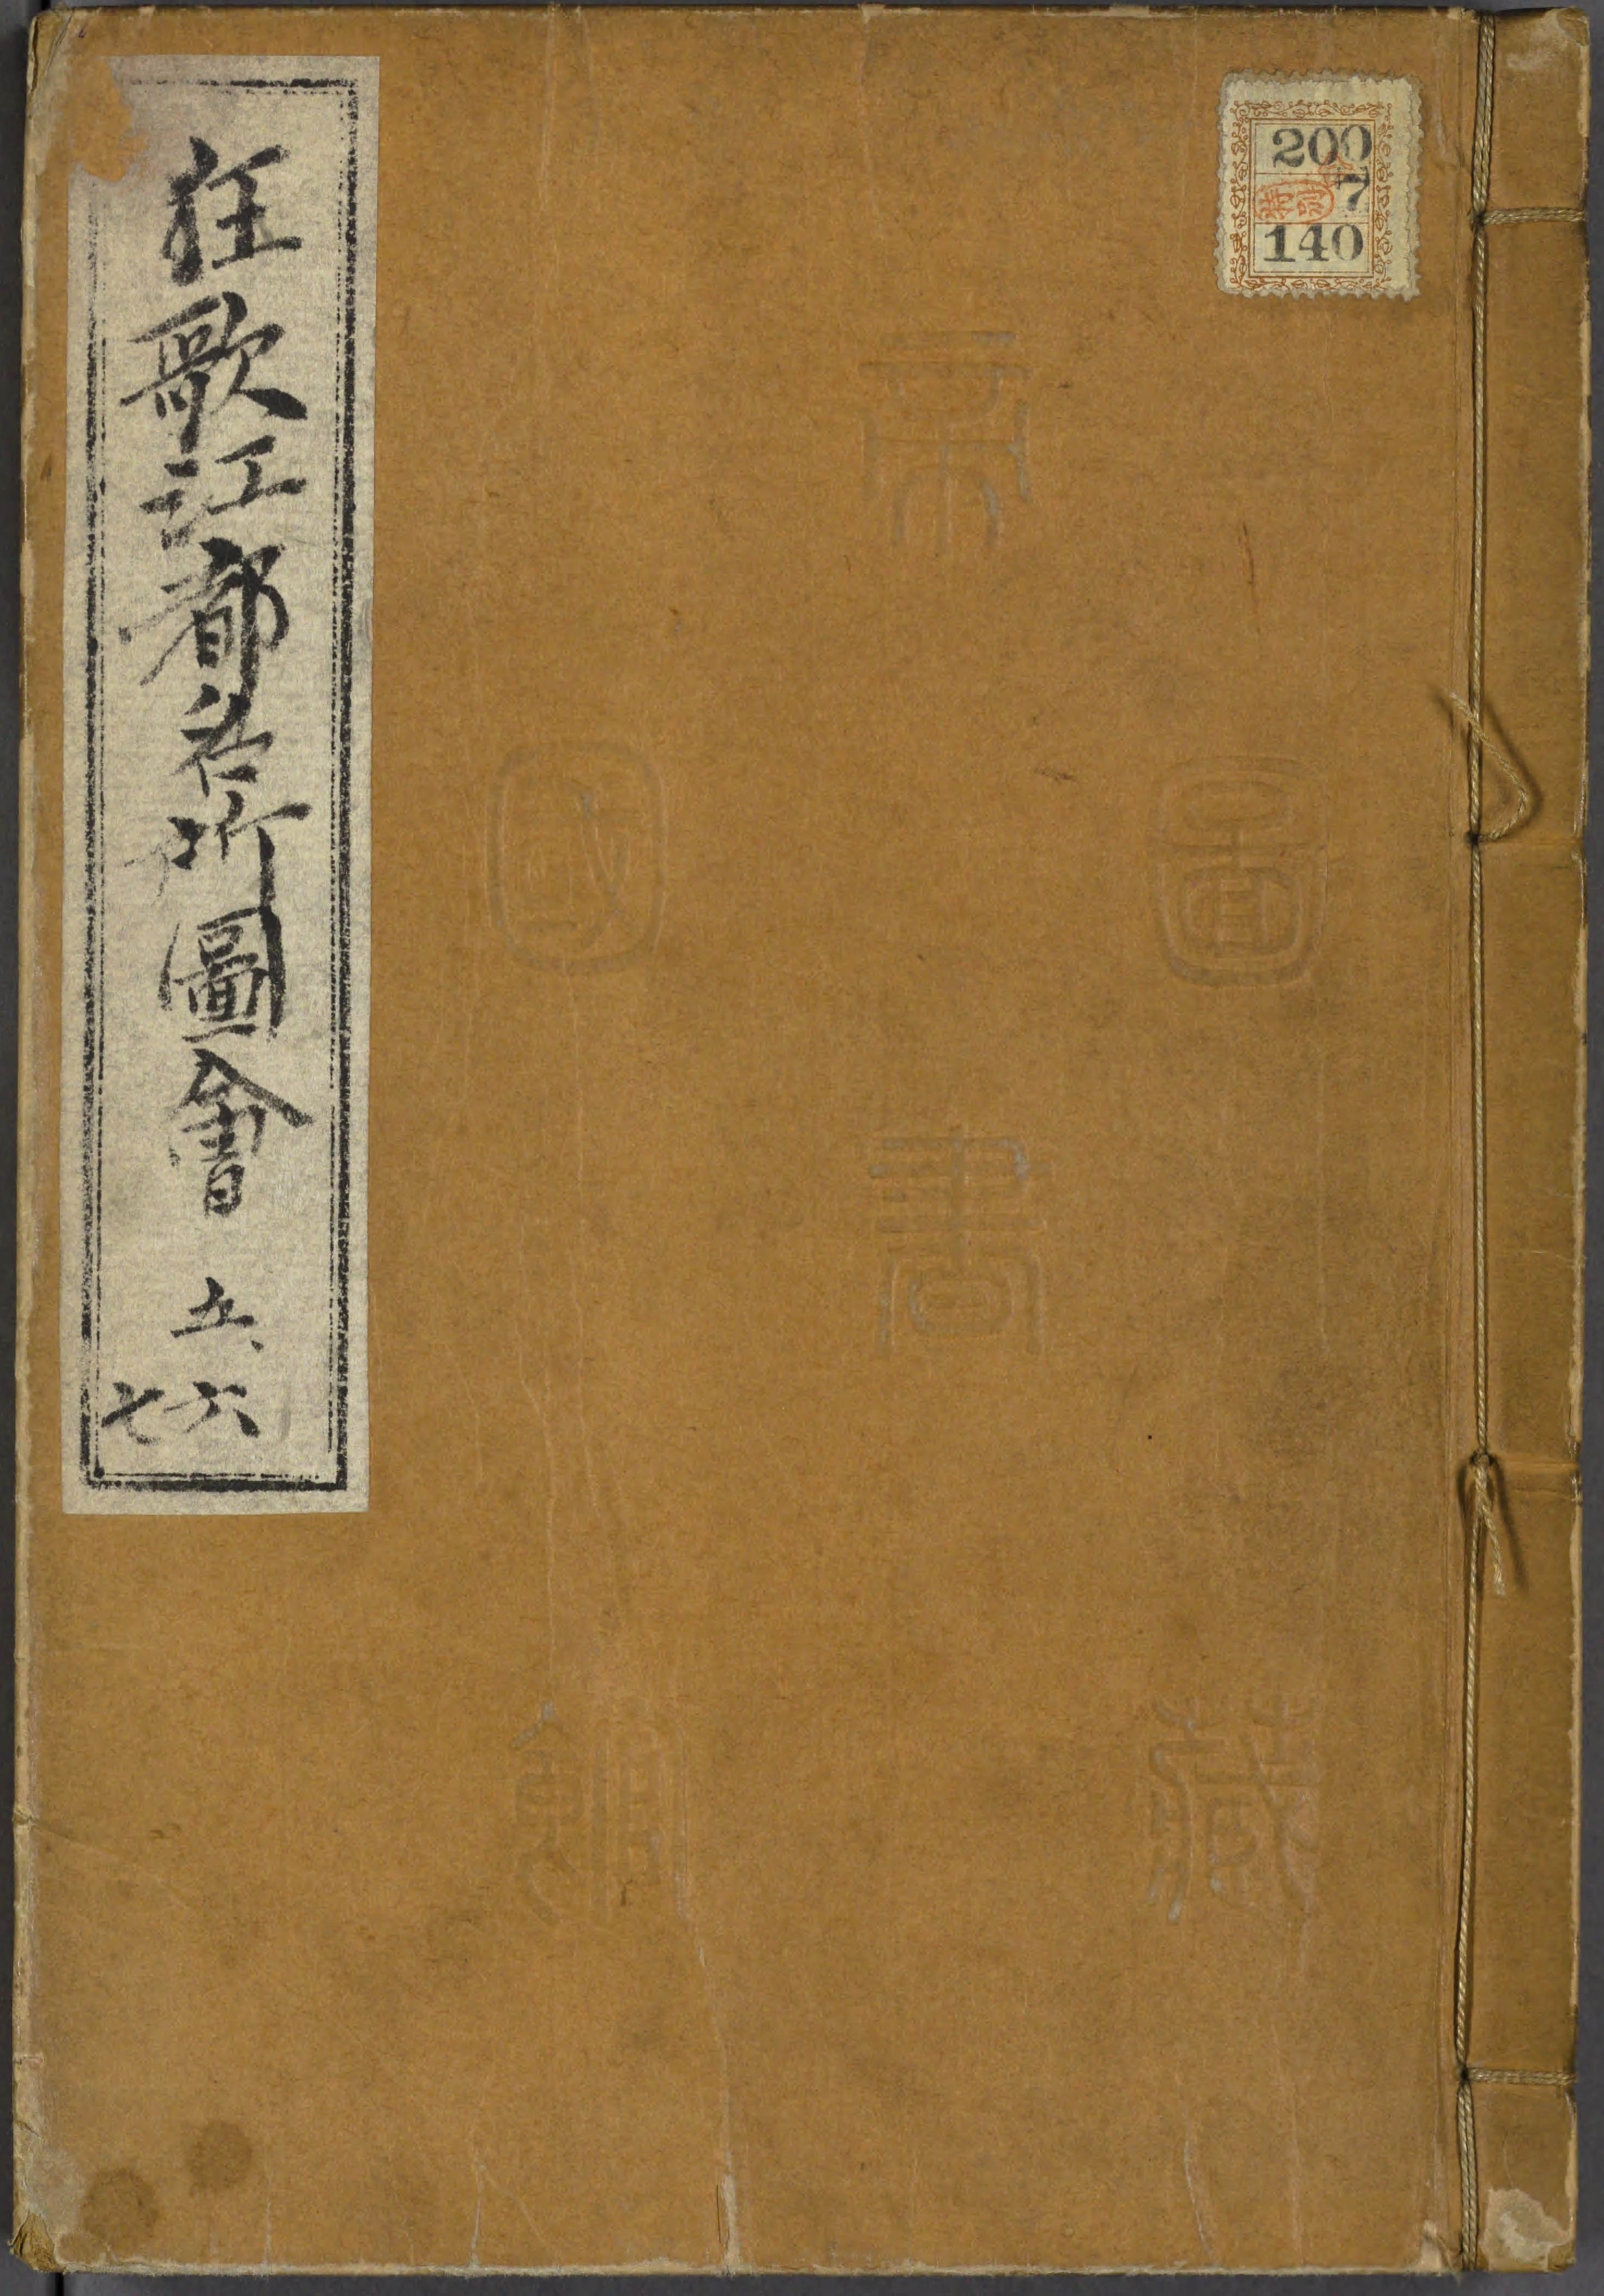 狂歌江都名所圖會 五、六
七
200
7
特別
140
帝
國
圖
書
館
藏